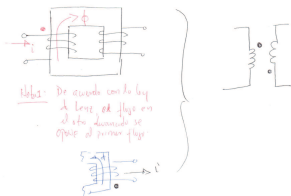 Φ
i
Nota: De acuerdo con la ley
d Lenz el flujo en
el otro devanado se
opone al primer flujo.
i'